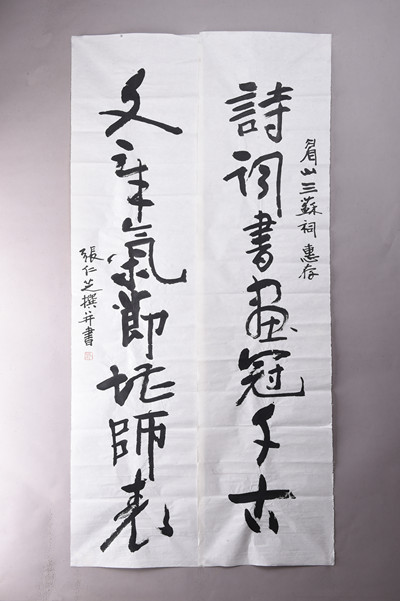 眉山三蘇祠惠存
詩詞書畫冠千古
文章氣節堪師表
張仁芝撰并書